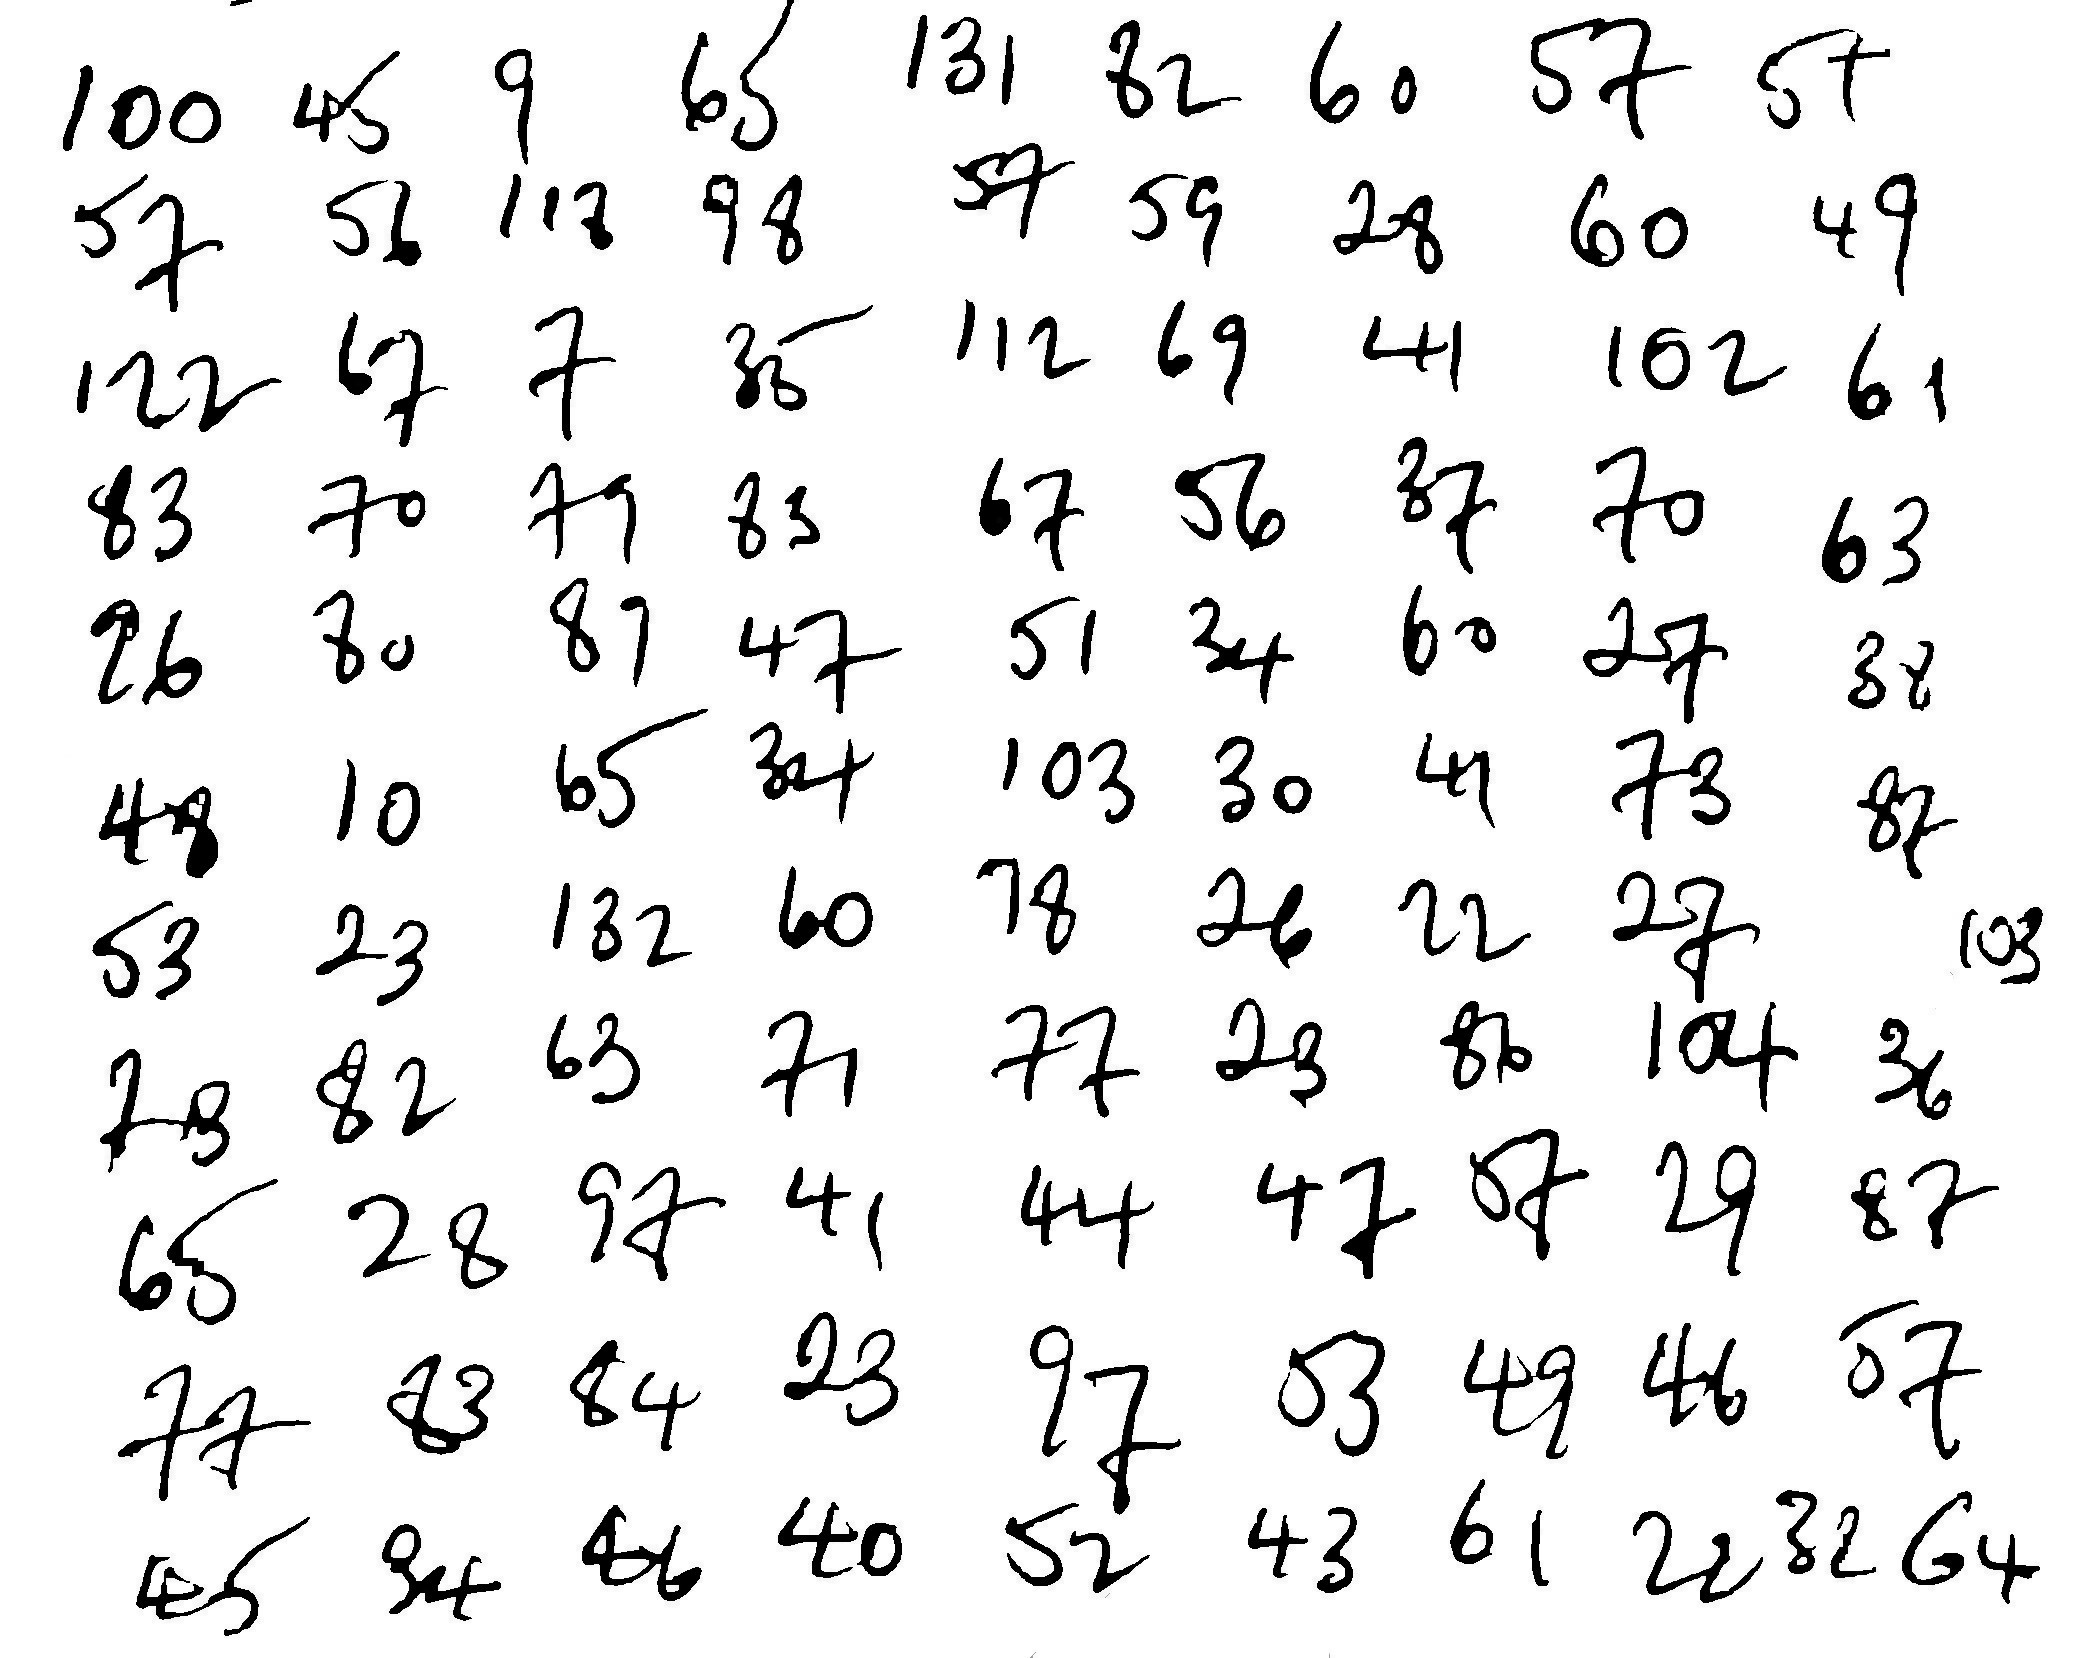 100 45 9 65 131 82 60 57 57
57 56 112 98 57 59 28 60 49
122 67 7 35 112 69 41 102 61
83 70 79 83 67 56 37 70 63
26 80 87 47 51 34 60 27 38
48 10 65 34 103 30 41 73 87
53 23 132 60 78 26 22 27 103
28 82 63 71 77 23 86 104 36
65 28 97 41 44 47 57 29 87
77 83 84 23 97 53 49 46 57
45 34 86 40 52 43 61 22 32 64